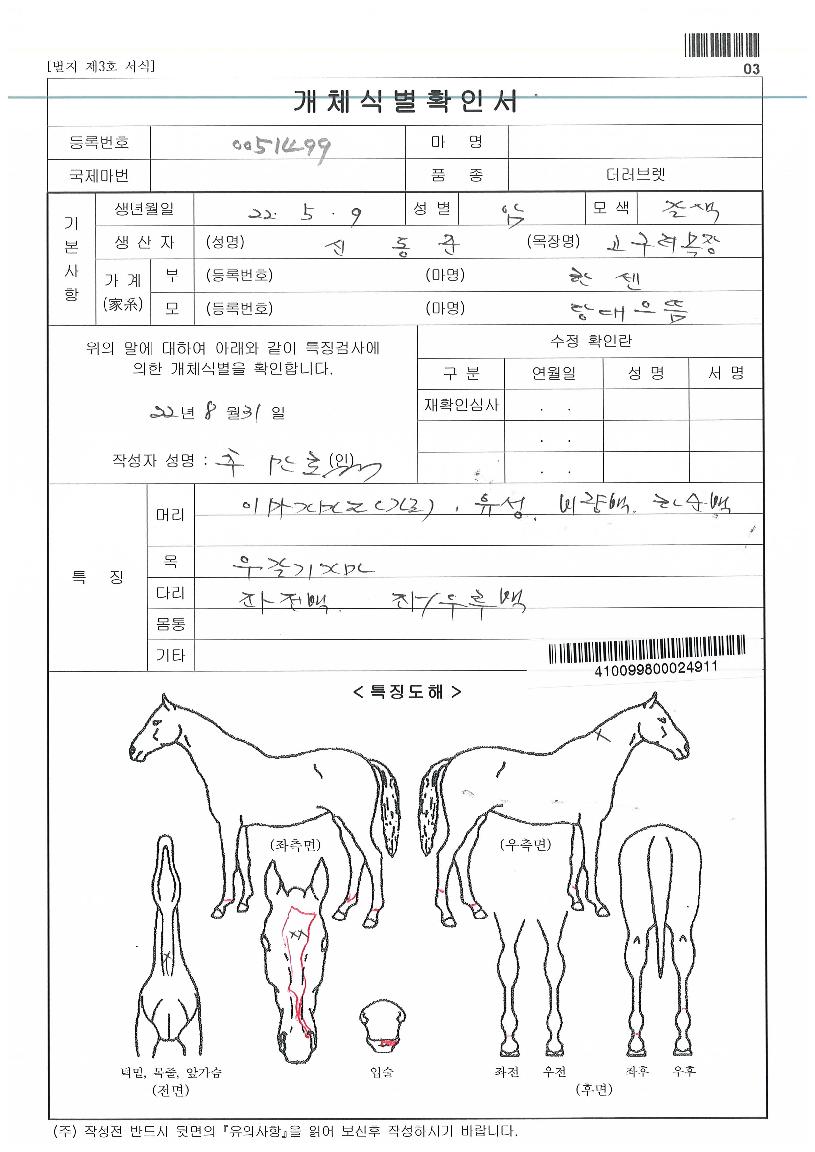 03
[별지 제3호 서식]
개체식별확인서
등록번호 0051499 마 명
국제마번 품 종 더러브렛
기본사항
생년월일 22. 5. 9 성별 암 모색
생산자 (성명) 신동준 (목장명) 고구려목장
가계(家系) 부 (등록번호) (마명) 한센
모 (등록번호) (마명) 당대으뜸
위의 말에 대하여 아래와 같이 특징검사에
의한 개체식별을 확인합니다.
22년 8월 31일
작성자 성명 : (인)
수정 확인란
구분 연월일 성명 서명
재확인심사 . .
. .
. .
특 징
머리 유성. 비량백.
목
다리 좌전백. 좌/우후백
몸통
기타
410099800024911
< 특징도해 >
(좌측면) (우측면)
턱밑, 목줄, 앞가슴
(전면)
입술
좌전 우전 좌후 우후
(후면)
(주) 작성전 반드시 뒷면의 『유의사항』을 읽어 보신후 작성하시기 바랍니다.